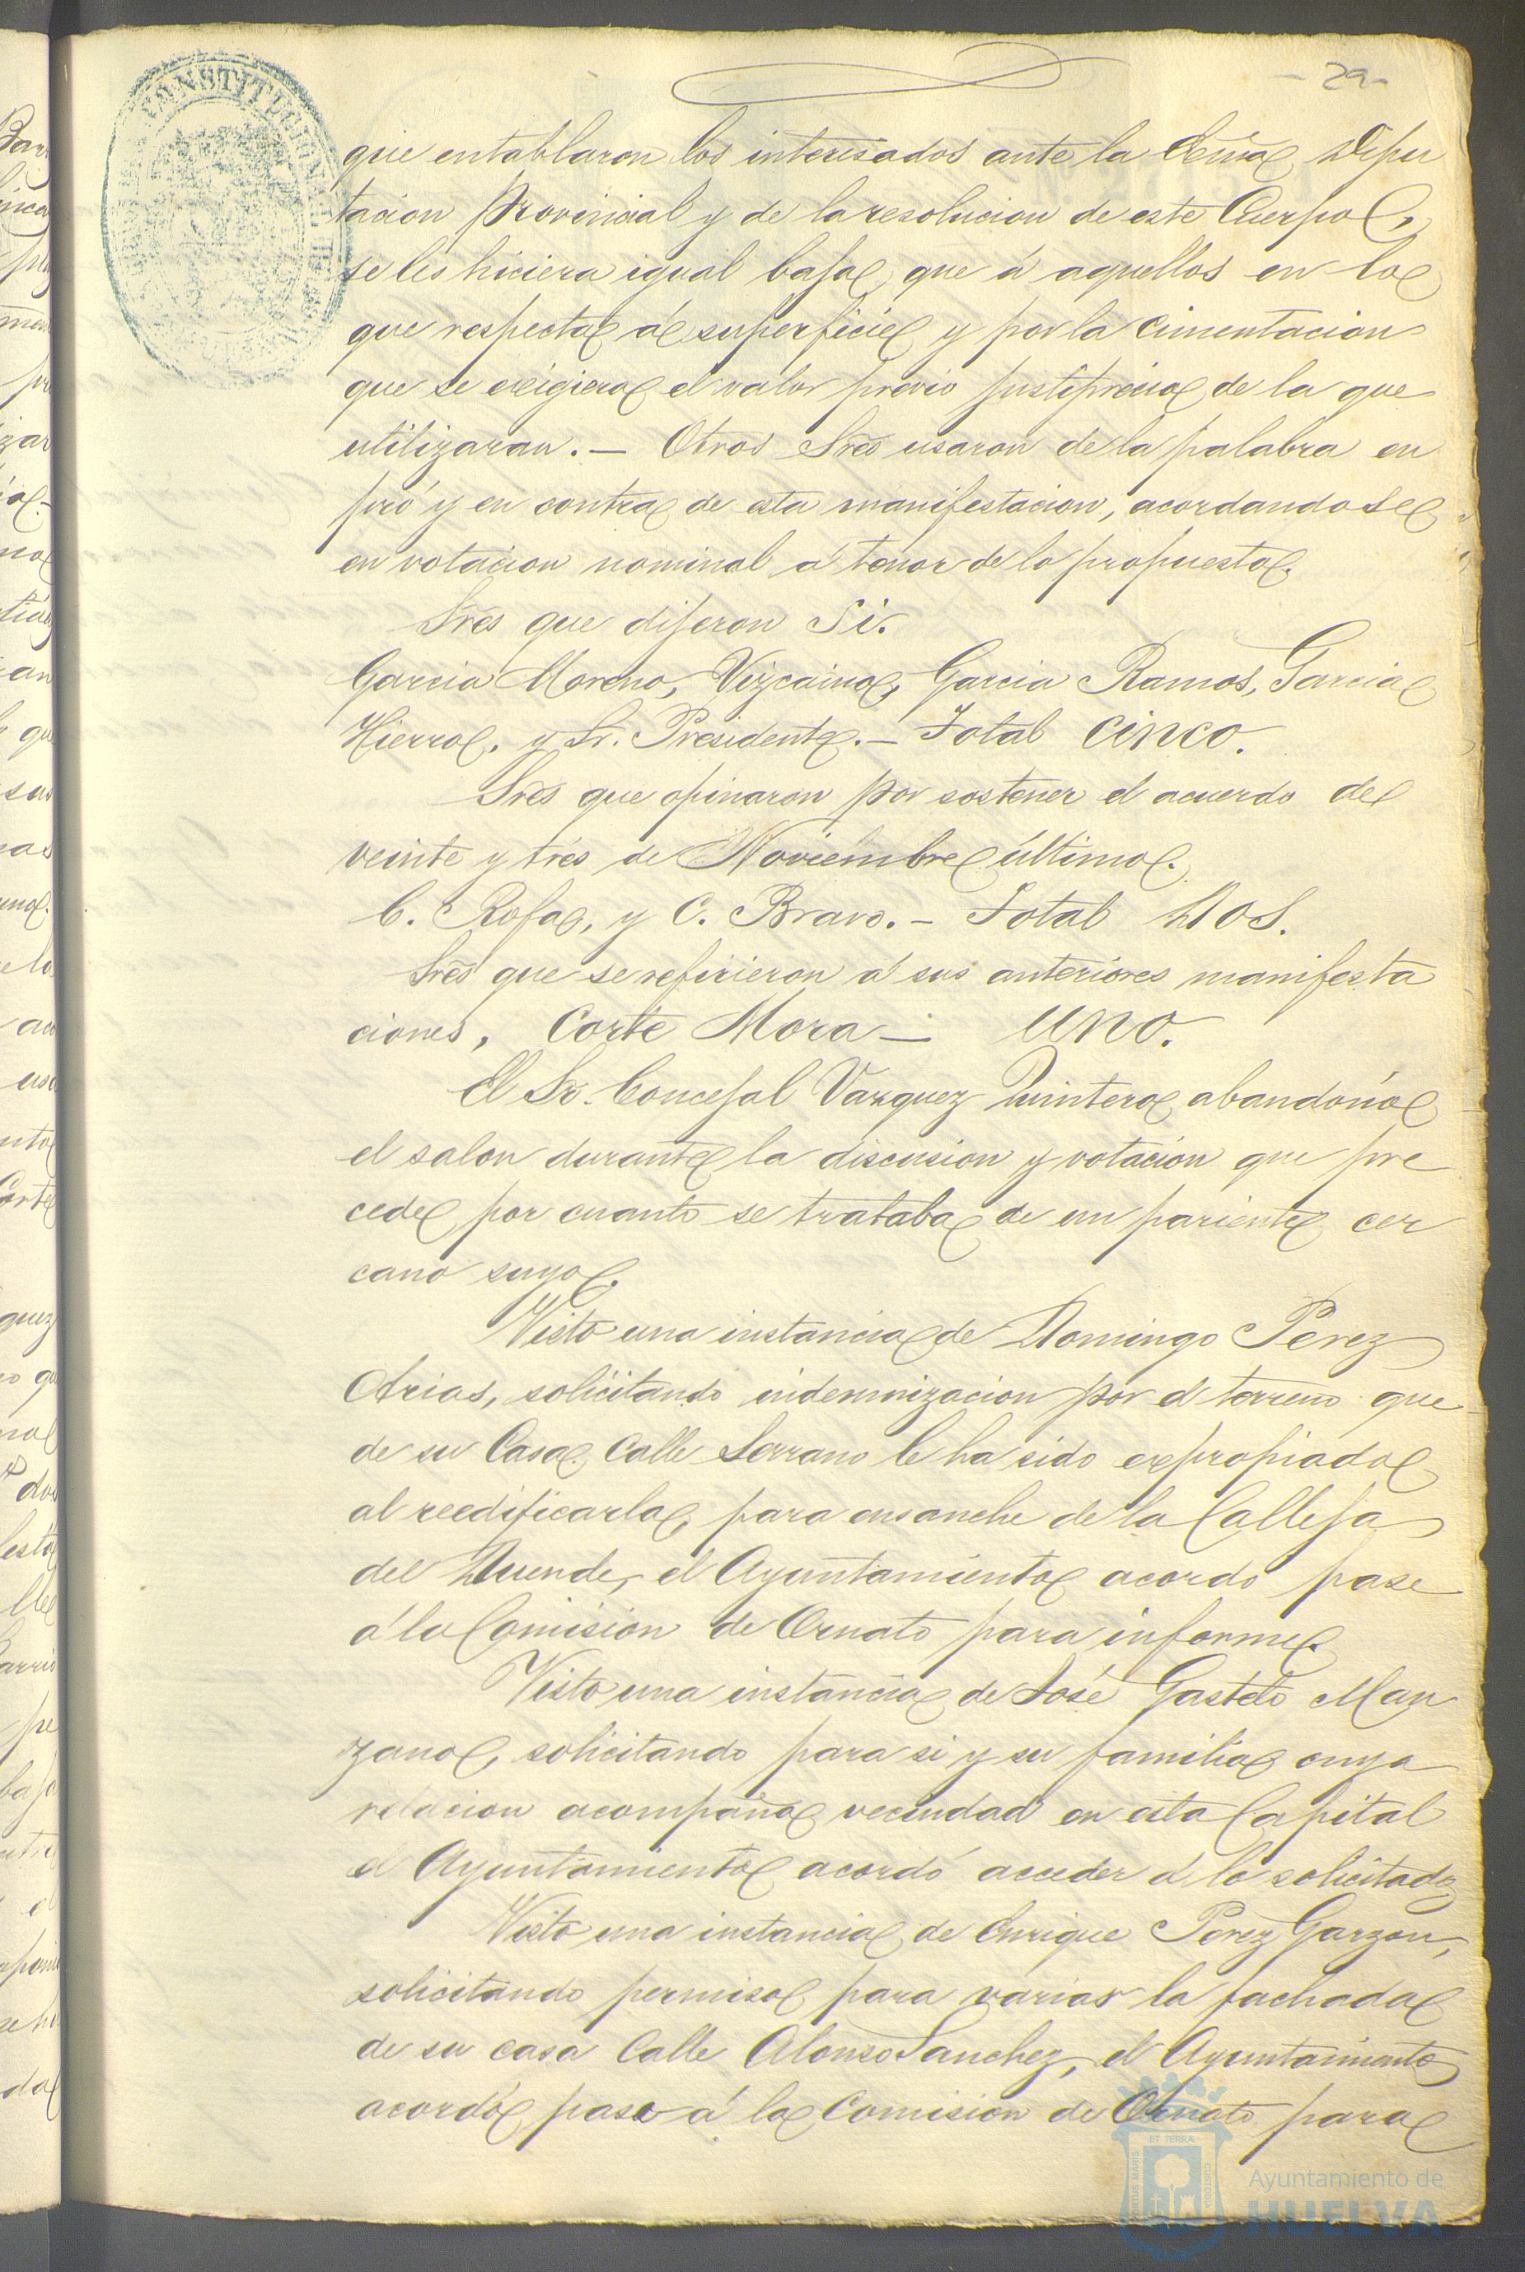 - 29-
que entablaron los interesados ante la Excma Dipu
tacion provincial y de la resolucion de este Cuerpo,
se les hiciera igual baja que á aquellos en lo
que respecta á superficie y por la cimentacion
que se exigiera el valor previo justiprecio de la que
utilizaran. — Otros Sres usaron de la palabra en
pró y en contra de esta manifestacion, acordandose
en votacion nominal á tenor de lo propuesto.
Sres que dijeron Si.
Garcia Moreno, Vizcaino, Garcia Ramos, Garcia
Hierro, y Sr. Presidente. — Total cinco.
Sres que opinaron por sostener el acuerdo del
veinte y tres de Noviembre último.
C. Rofa, y C. Bravo. — Total DOS.
Sres que se refirieron á sus anteriores manifesta
ciones, Corte Mora — uno.
El Sr. Concejal Vazquez Quintero abandonó
el salon durante la discusion y votacion que pre
cede por cuanto se trataba de un pariente cer
cano suyo.
Visto una instancia de Domingo Perez
Arias, solicitando indemnizacion por el terreno que
de su Casa Calle Serrano le ha sido expropiado
al reedificarla, para ensanche de la Calleja
del Duende, el Ayuntamiento acordo pase
á la Comision de Ornato para informe.
Visto una instancia de José Gastelo Man
zano, solicitando para si y su familia cuya
relacion acompaña vecindad en esta Capital
el Ayuntamiento acordó acceder á lo solicitado
Visto una instancia de Enrique Perez Garzon,
solicitando permiso para variar la fachada
de su casa Calle Alonso Sanchez, el Ayuntamiento
acordó pase á la Comision de Ornato para
Ayuntamiento de
HUELVA